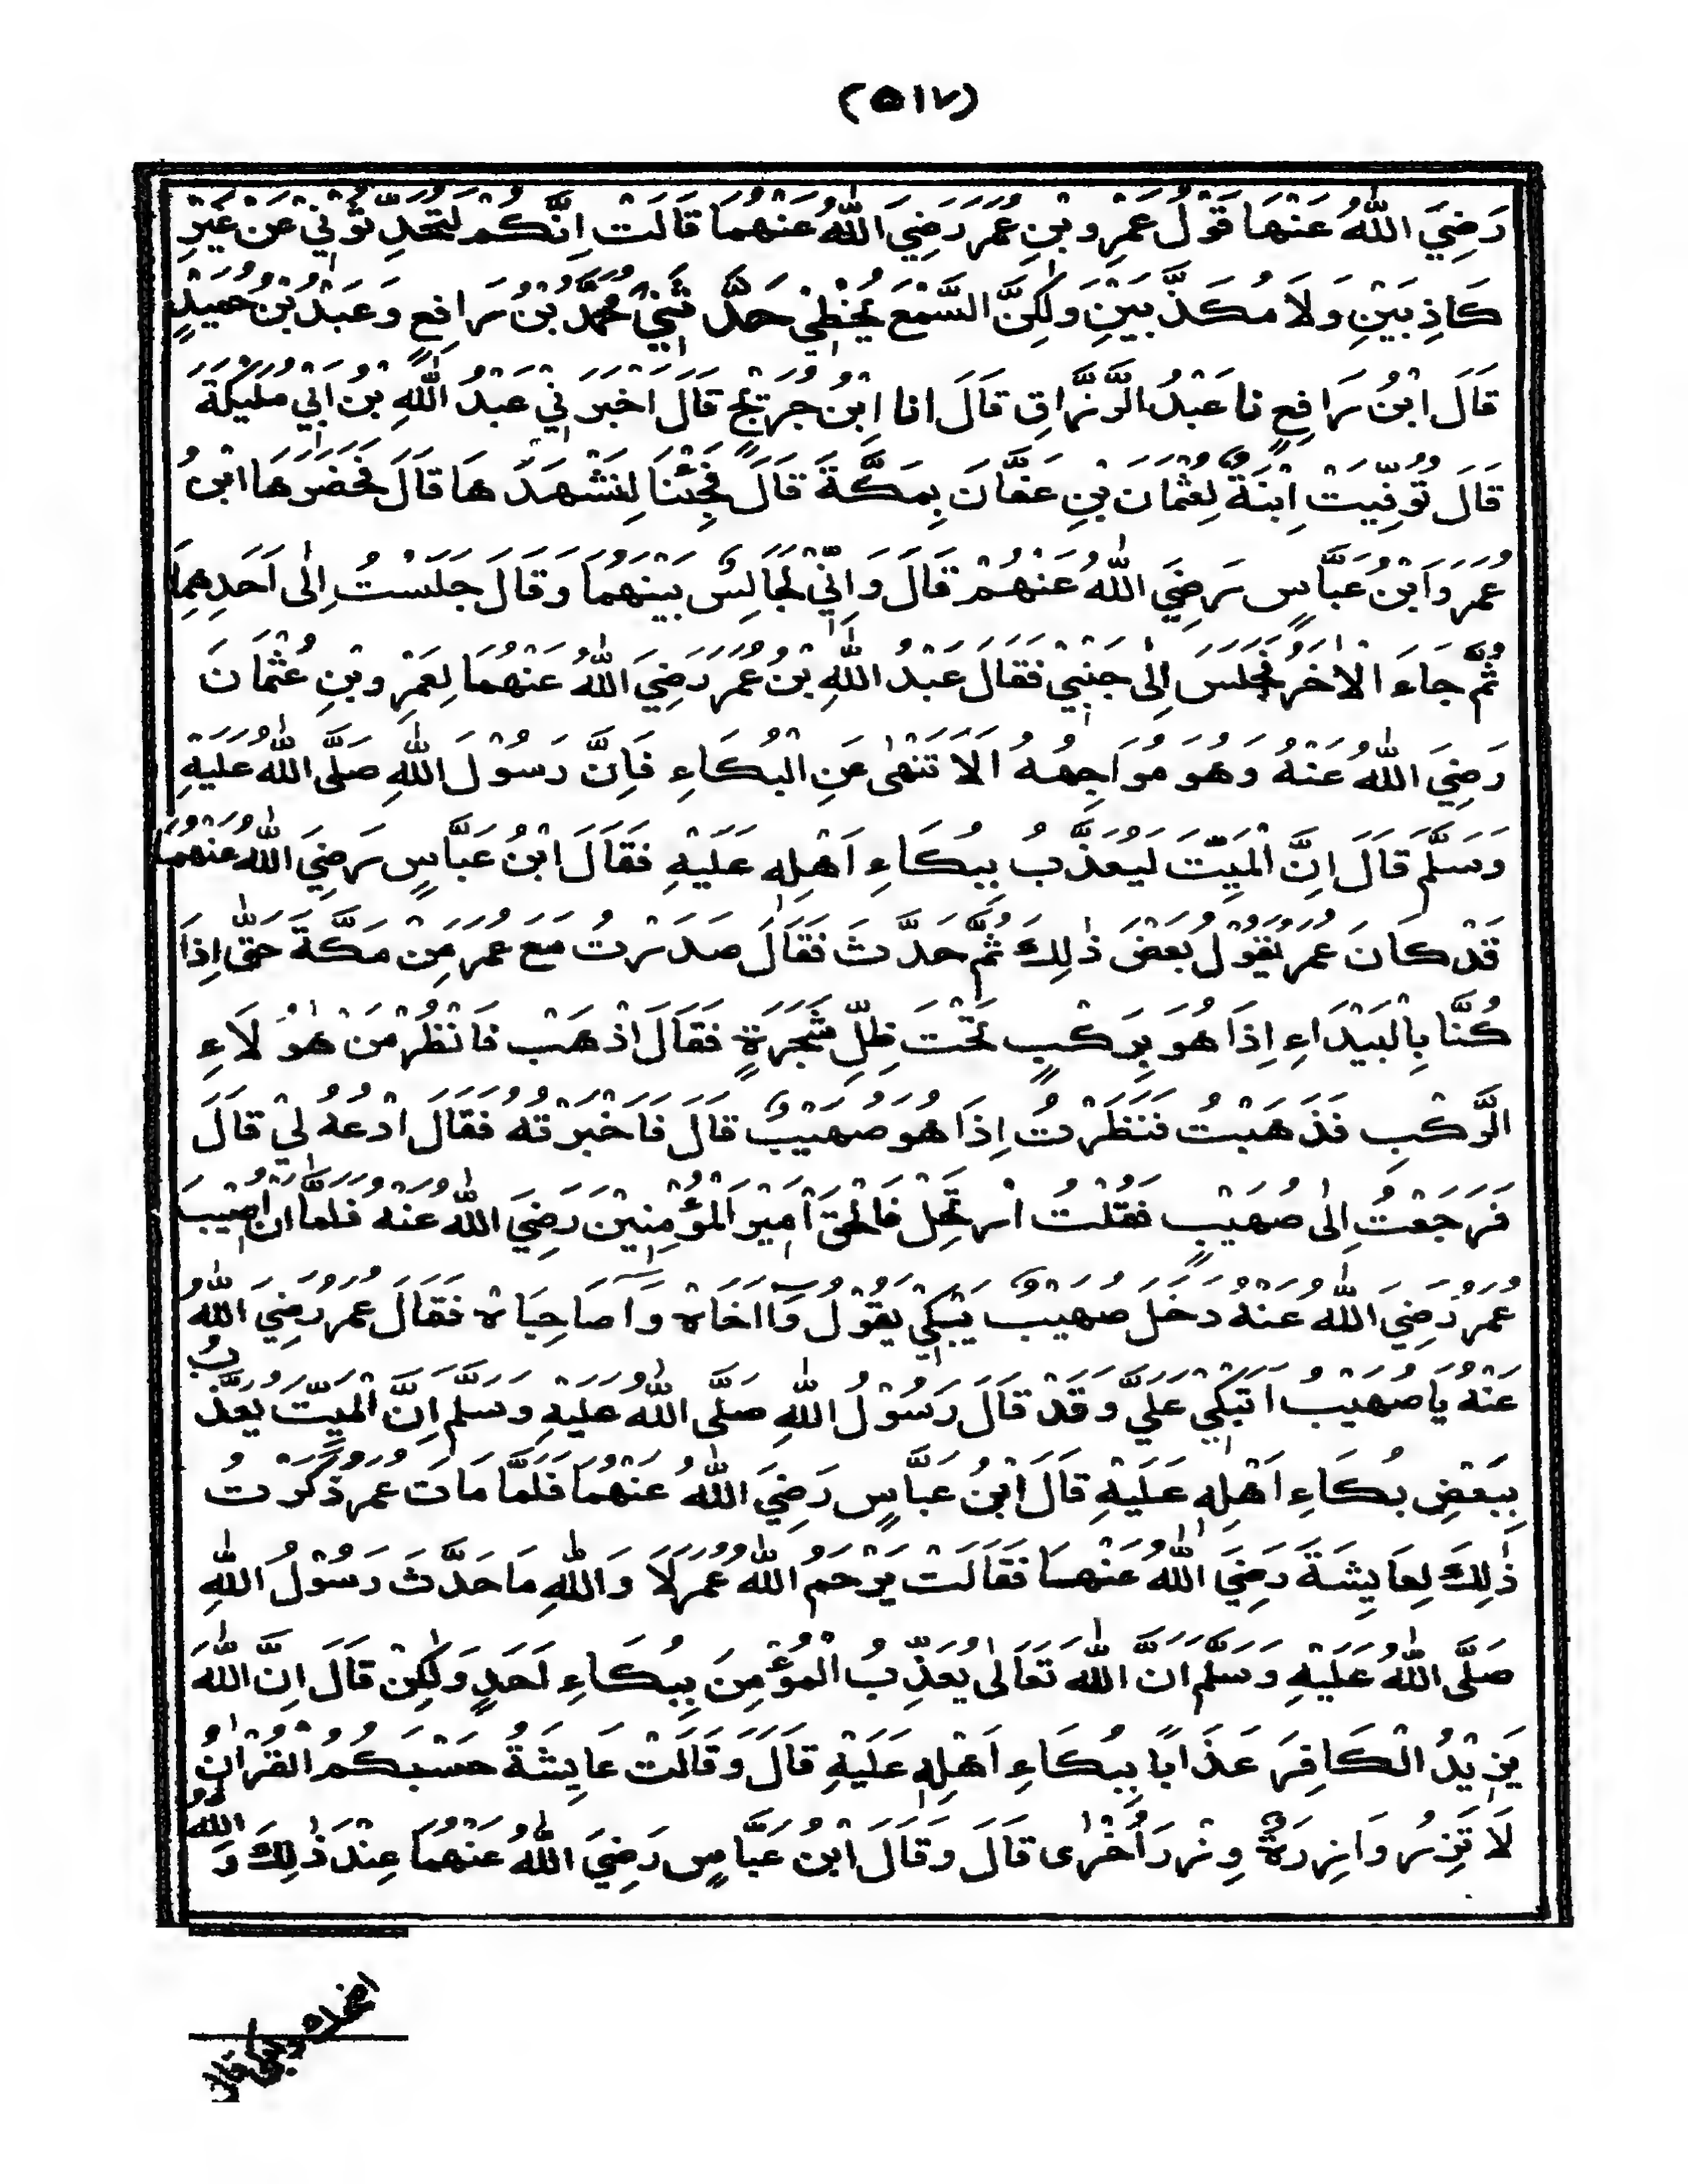 (٥١٧)
رَضِيَ اللّٰهُ عَنْهَا قَوْلُ عُمَرَ وَبْنِ عُمَرَ رَضِيَ اللّٰهُ عَنْهُمَا قَالَتْ اِنَّكُمْ لَتُحَدِّثُوْنِّيْ عَنْ غَيْرِ
كَاذِبَيْنِ وَلَا مُكَذَّبَيْنِ وَلٰكِنَّ السَّمْعَ يُخْطِئُ حَدَّثَنِيْ مُحَمَّدُ بْنُ رَافِعٍ وَعَبْدُ بْنُ حُمَيْدٍ
قَالَ ابْنُ رَافِعٍ نا عَبْدُ الرَّزَّاقِ قَالَ انا اِبْنُ جُرَيْجٍ قَالَ اَخْبَرَنِيْ عَبْدُ اللّٰهِ بْنُ اَبِيْ مُلَيْكَةَ
قَالَ تُوُفِّيَتْ اِبْنَةٌ لِعُثْمَانَ بْنِ عَفَّانَ بِمَكَّةَ قَالَ فَجِئْنَا لِنَشْهَدَهَا قَالَ فَحَضَرَهَا ابْنُ
عُمَرَ وَابْنُ عَبَّاسٍ رَضِيَ اللّٰهُ عَنْهُمْ قَالَ وَاِنِّيْ لَجَالِسٌ بَيْنَهُمَا وَقَالَ جَلَسْتُ اِلٰى اَحَدِهِمَا
ثُمَّ جَاءَ الْاٰخَرُ فَجَلَسَ اِلٰى جَنْبِيْ فَقَالَ عَبْدُ اللّٰهِ بْنُ عُمَرَ رَضِيَ اللّٰهُ عَنْهُمَا لِعَمْرِوبْنِ عُثْمَانَ
رَضِيَ اللّٰهُ عَنْهُ وَهُوَ مُوَاجِهُهُ اَلَا تَنْهٰى عَنِ الْبُكَاءِ فَاِنَّ رَسُوْلَ اللّٰهِ صَلَّى اللّٰهُ عَلَيْهِ
وَسَلَّمَ قَالَ اِنَّ الْمَيِّتَ لَيُعَذَّبُ بِبُكَاءِ اَهْلِهٖ عَلَيْهِ فَقَالَ ابْنُ عَبَّاسٍ رَضِيَ اللّٰهُ عَنْهُمَا
قَدْ كَانَ عُمَرُ يَقُوْلُ بَعْضَ ذٰلِكَ ثُمَّ حَدَّثَ فَقَالَ صَدَرْتُ مَعَ عُمَرَ مِنْ مَكَّةَ حَتّٰى اِذَا
كُنَّا بِالْبَيْدَاءِ اِذَا هُوَ بِرَكْبٍ تَحْتَ ظِلِّ شَجَرَةٍ فَقَالَ اذْهَبْ فَانْظُرْ مَنْ هٰؤُلَاءِ
الرَّكْبِ فَذَهَبْتُ فَنَظَرْتُ اِذَا هُوَ صُهَيْبٌ قَالَ فَاَخْبَرْتُهُ فَقَالَ ادْعُهُ لِيْ قَالَ
فَرَجَعْتُ اِلٰى صُهَيْبٍ فَقُلْتُ ارْتَحِلْ فَالْحَقْ اَمِيْرَ الْمُؤْمِنِيْنَ رَضِيَ اللّٰهُ عَنْهُ فَلَمَّا اَنْ اُصِيْبَ
عُمَرُ رَضِيَ اللّٰهُ عَنْهُ دَخَلَ صُهَيْبٌ يَبْكِيْ يَقُوْلُ وَااَخَاهْ وَاصَاحِبَاهْ فَقَالَ عُمَرُ رَضِيَ اللّٰهُ
عَنْهُ يَا صُهَيْبُ اَتَبْكِيْ عَلَيَّ وَقَدْ قَالَ رَسُوْلُ اللّٰهِ صَلَّى اللّٰهُ عَلَيْهِ وَسَلَّمَ اِنَّ الْمَيِّتَ يُعَذَّبُ
بِبَعْضِ بُكَاءِ اَهْلِهٖ عَلَيْهِ قَالَ ابْنُ عَبَّاسٍ رَضِيَ اللّٰهُ عَنْهُمَا فَلَمَّا مَاتَ عُمَرُ ذَكَرْتُ
ذٰلِكَ لِعَايِشَةَ رَضِيَ اللّٰهُ عَنْهَا فَقَالَتْ يَرْحَمُ اللّٰهُ عُمَرَ لَا وَاللّٰهِ مَا حَدَّثَ رَسُوْلُ اللّٰهِ
صَلَّى اللّٰهُ عَلَيْهِ وَسَلَّمَ اِنَّ اللّٰهَ تَعَالٰى يُعَذِّبُ الْمُؤْمِنَ بِبُكَاءِ اَحَدٍ وَلٰكِنْ قَالَ اِنَّ اللّٰهَ
يَزِيْدُ الْكَافِرَ عَذَابًا بِبُكَاءِ اَهْلِهٖ عَلَيْهِ قَالَ وَقَالَتْ عَايِشَةُ حَسْبُكُمُ الْقُرْاٰنُ
لَا تَزِرُ وَازِرَةٌ وِزْرَ اُخْرٰى قَالَ وَقَالَ ابْنُ عَبَّاسٍ رَضِيَ اللّٰهُ عَنْهُمَا عِنْدَ ذٰلِكَ وَاللّٰهُ